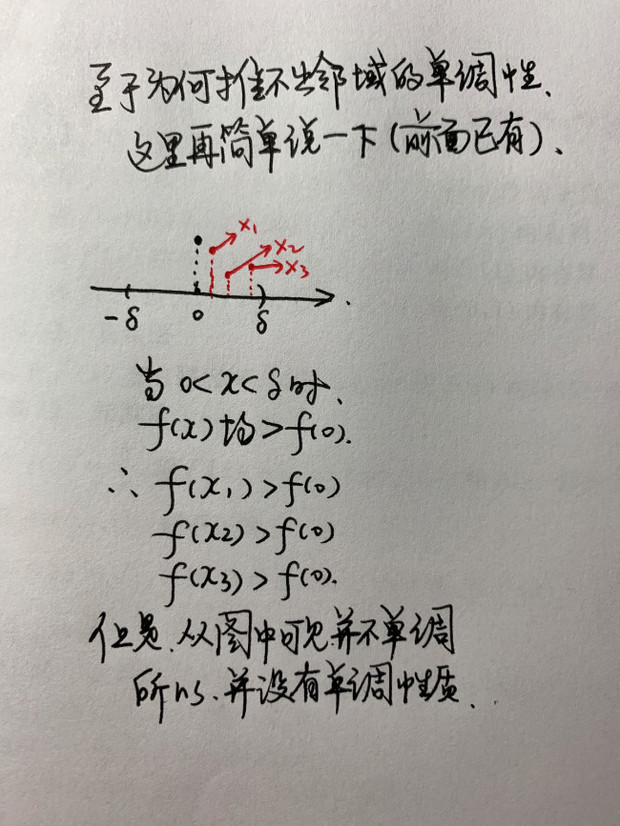 至于为何推不出邻域的单调性、
这里再简单说一下(前面已有)、
x₁
x₂
x₃
-δ 0 δ
当 0<x<δ时、
f(x)均>f(0).
∴ f(x₁)>f(0)
f(x₂)>f(0)
f(x₃)>f(0).
但是、从图中可见并不单调
所以、并没有单调性质、